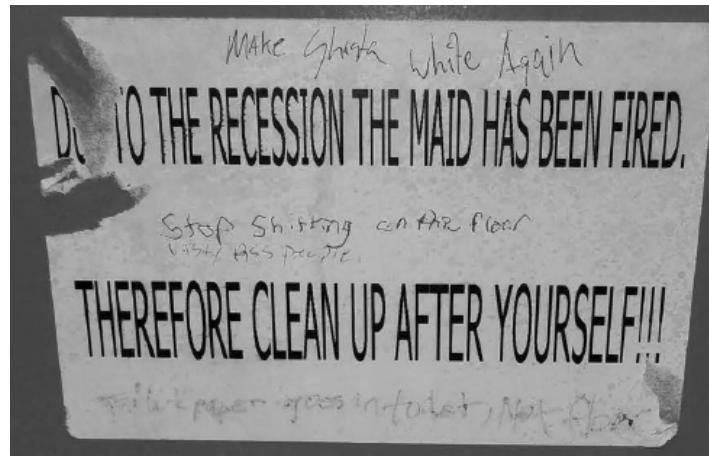 Make Shasta White Again
DUE TO THE RECESSION THE MAID HAS BEEN FIRED.
Stop Shitting on the floor
nasty ASS people.
THEREFORE CLEAN UP AFTER YOURSELF!!!
toilet paper goes in toilet, Not floor